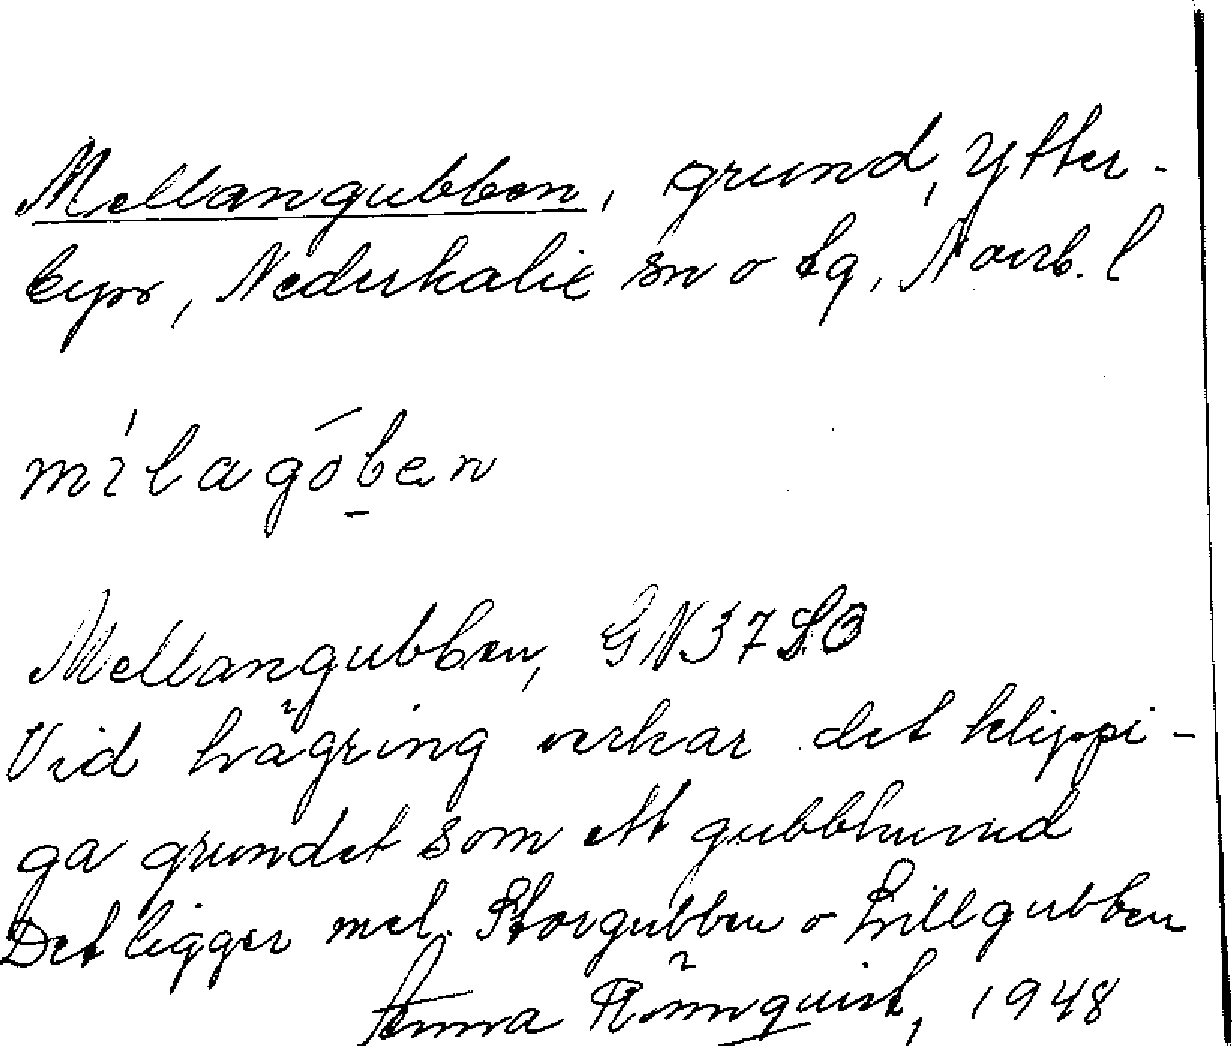 Mellangubben, grund, Ytter-
byn, Nederkalix sn o tg, Norrb. l
mílagóben
Mellangubben, GN37SO
Vid hägring verkar det klippi-
ga grundet som ett gubbhuvud
Det ligger mel. Storgubben o Lillgubben
Anna Rönnquist, 1948